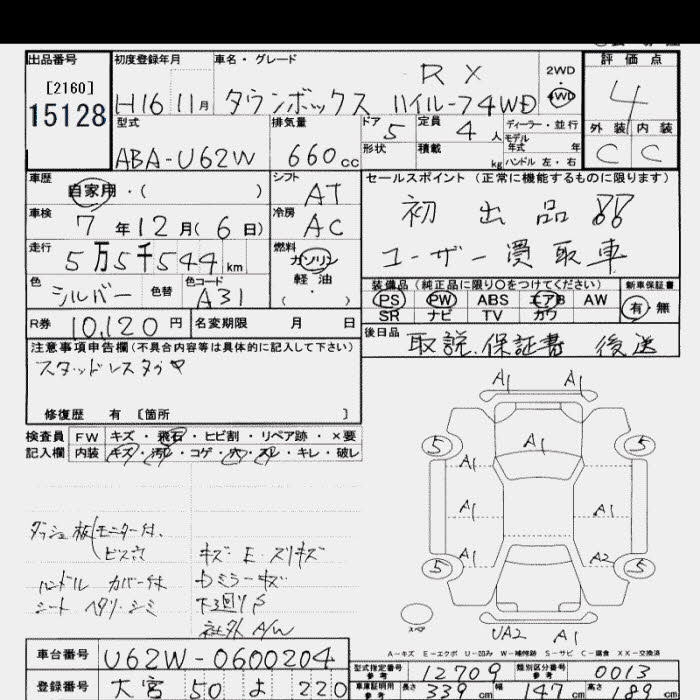 出品番号 初度登録年月 車名・グレード 評価点
[2160] RX 2WD・4WD 4
15128 H16 11月 タウンボックス ハイルーフ4WD
型式 排気量 ドア 5 定員 4人 ディーラー・並行 外装 内装
モデル年式 年
ABA-U62W 660cc 形状 積載 kg ハンドル 左・右 C C
車歴 シフト セールスポイント(正常に機能するものに限ります)
自家用・( ) AT 初出品!!
車検 冷房
7年12月(6日) AC ユーザー買取車
走行 燃料
5万5千544km ガソリン
色 色替 色コード 軽油 装備品(純正品に限り○をつけてください) 新車保証書
シルバー A31 ・( ) PS PW ABS エアB AW 有・無
SR ナビ TV カワ
R券 10,120円 名変期限 月 日 後日品
取説.保証書 後送
注意事項申告欄(不具合内容等は具体的に記入して下さい)
スタッドレスタイヤ
修復歴 有 [箇所 ]
検査員 FW キズ・飛石・ヒビ割・リペア跡・×要
記入欄 内装 キズ・汚れ・コゲ・穴・スレ・キレ・破レ
A1 A1
5 A1 5
A1
A1 A1
A1 A2
5 5
スペア
UA2 A1
ダッシュ板(モニター付.
ビス穴 キズ・E・スリキズ
ハンドル カバー付 Dミラーキズ
シート ヘタリ・シミ 下廻りS
社外A/W
A-キズ E-エクボ U-凹み W-補修跡 S-サビ C-腐食 XX-交換済
車台番号 U62W-0600204 型式指定番号 参考 12709 類別区分番号 参考 0013
登録番号 大宮 50 よ 220 車庫証明用 参考 長さ 339cm 幅 147cm 高さ 189cm